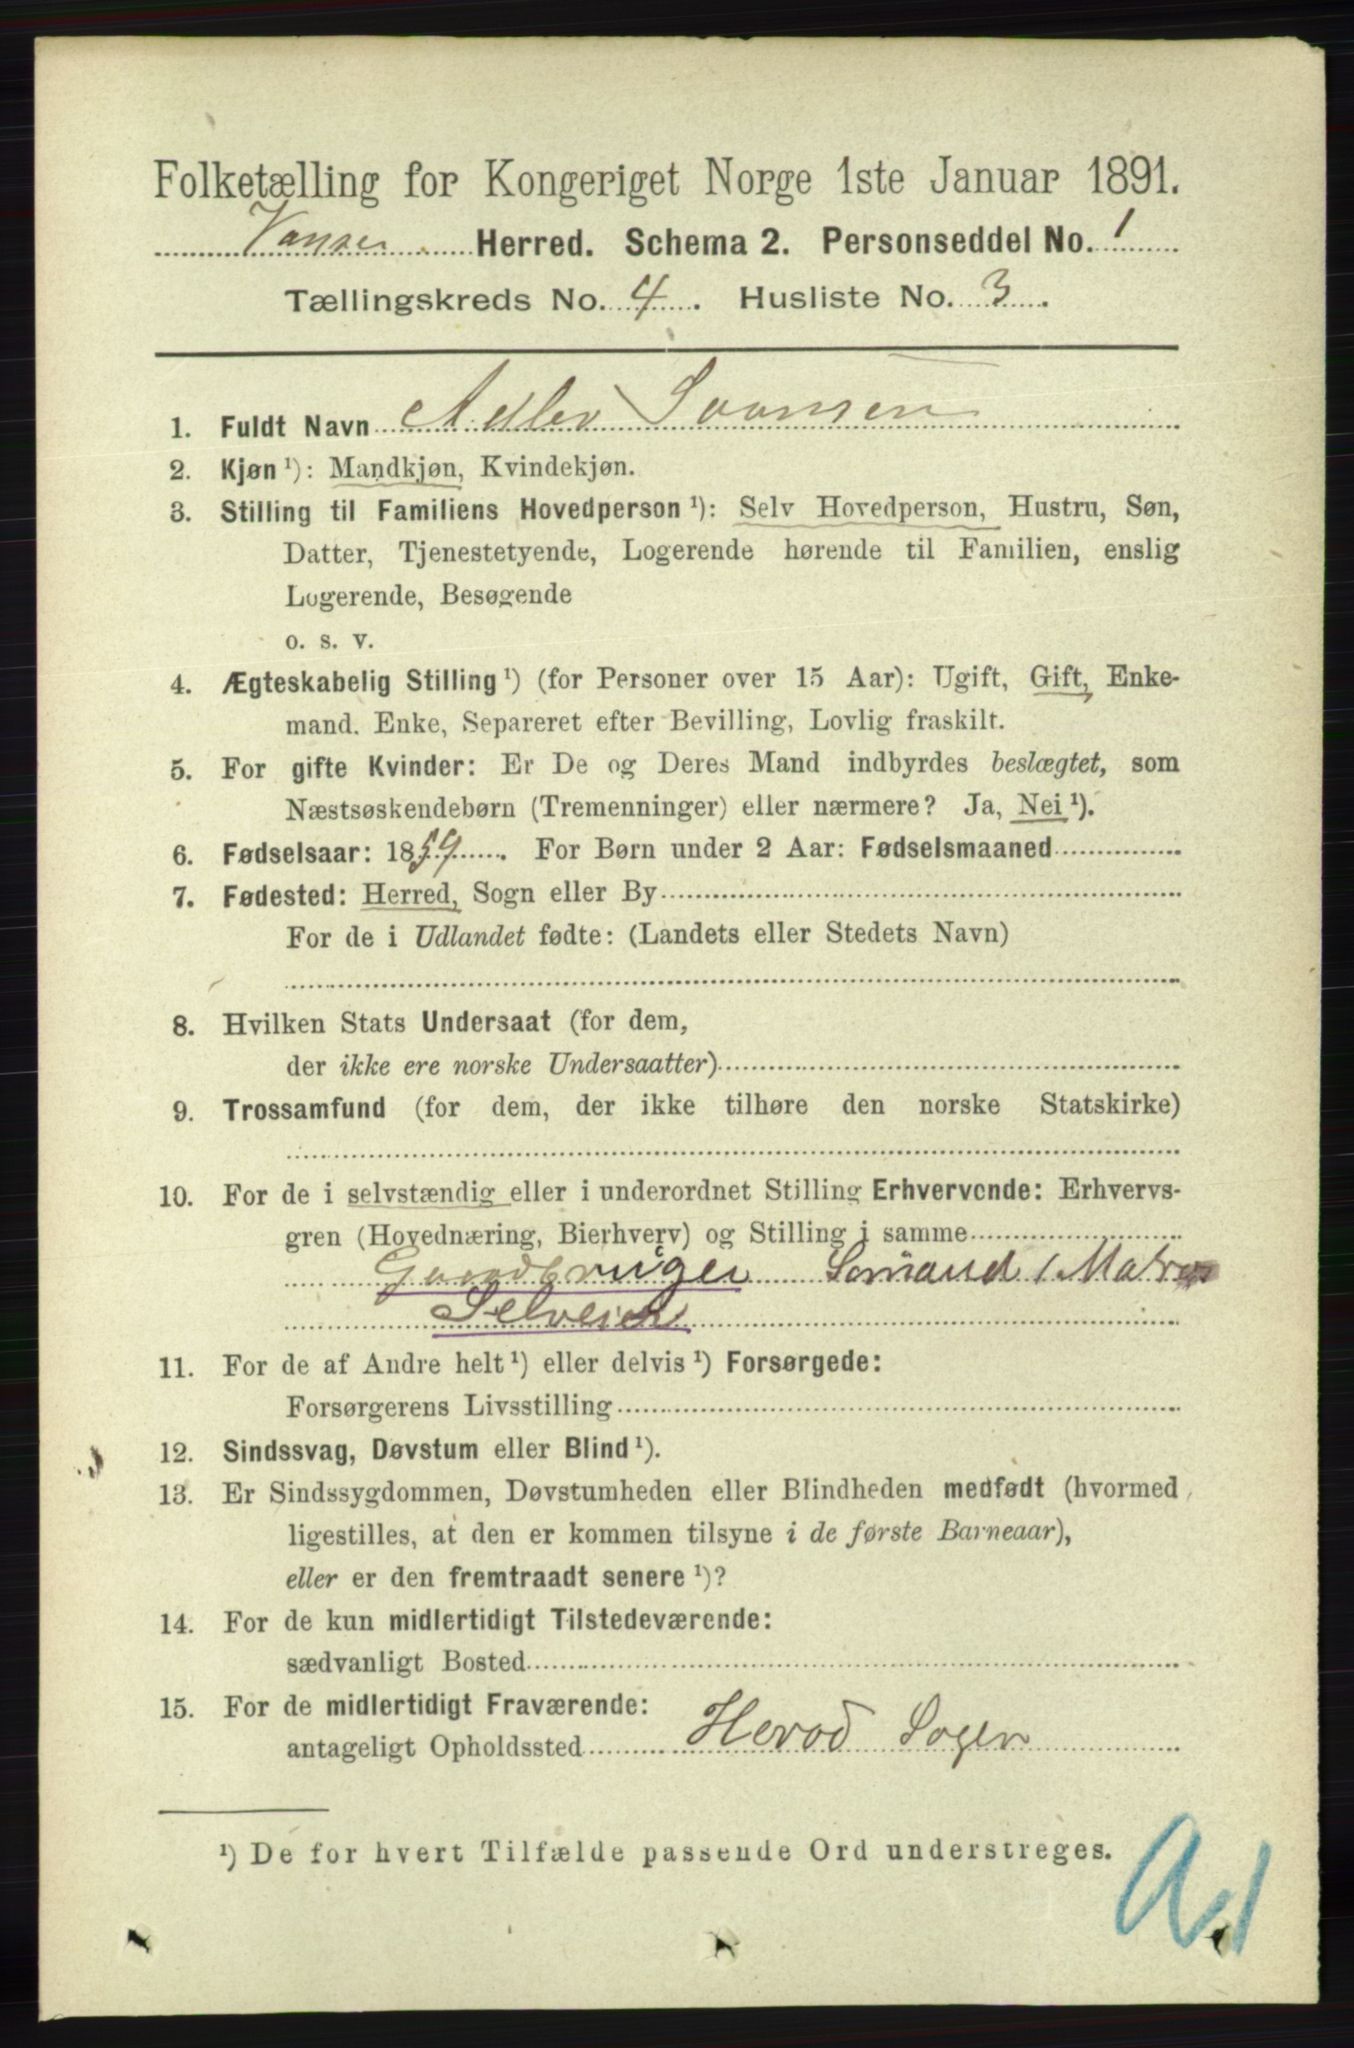 Folketælling for Kongeriget Norge 1ste Januar 1891.
Vanse Herred. Schema 2. Personseddel No. 1
Tællingskreds No. 4. Husliste No. 3.
1. Fuldt Navn
2. Kjøn ¹): Mandkjøn, Kvindekjøn.
3. Stilling til Familiens Hovedperson ¹): Selv Hovedperson, Hustru, Søn,
Datter, Tjenestetyende, Logerende hørende til Familien, enslig
Logerende, Besøgende
o. s. v.
4. Ægteskabelig Stilling ¹) (for Personer over 15 Aar): Ugift, Gift, Enke-
mand. Enke, Separeret efter Bevilling, Lovlig fraskilt.
5. For gifte Kvinder: Er De og Deres Mand indbyrdes beslægtet, som
Næstsøskendebørn (Tremenninger) eller nærmere? Ja, Nei ¹).
6. Fødselsaar: 1859. For Børn under 2 Aar: Fødselsmaaned
7. Fødested: Herred, Sogn eller By
For de i Udlandet fødte: (Landets eller Stedets Navn)
8. Hvilken Stats Undersaat (for dem,
der ikke ere norske Undersaatter)
9. Trossamfund (for dem, der ikke tilhøre den norske Statskirke)
10. For de i selvstændig eller i underordnet Stilling Erhvervende: Erhvervs-
gren (Hovednæring, Bierhverv) og Stilling i samme
Gaardbruger Sømand / Matros
Selveier
11. For de af Andre helt ¹) eller delvis ¹) Forsørgede:
Forsørgerens Livsstilling
12. Sindssvag, Døvstum eller Blind ¹).
13. Er Sindssygdommen, Døvstumheden eller Blindheden medfødt (hvormed
ligestilles, at den er kommen tilsyne i de første Barneaar),
eller er den fremtraadt senere ¹)?
14. For de kun midlertidigt Tilstedeværende:
sædvanligt Bosted
15. For de midlertidigt Fraværende:
antageligt Opholdssted Herod Sogn
¹) De for hvert Tilfælde passende Ord understreges.